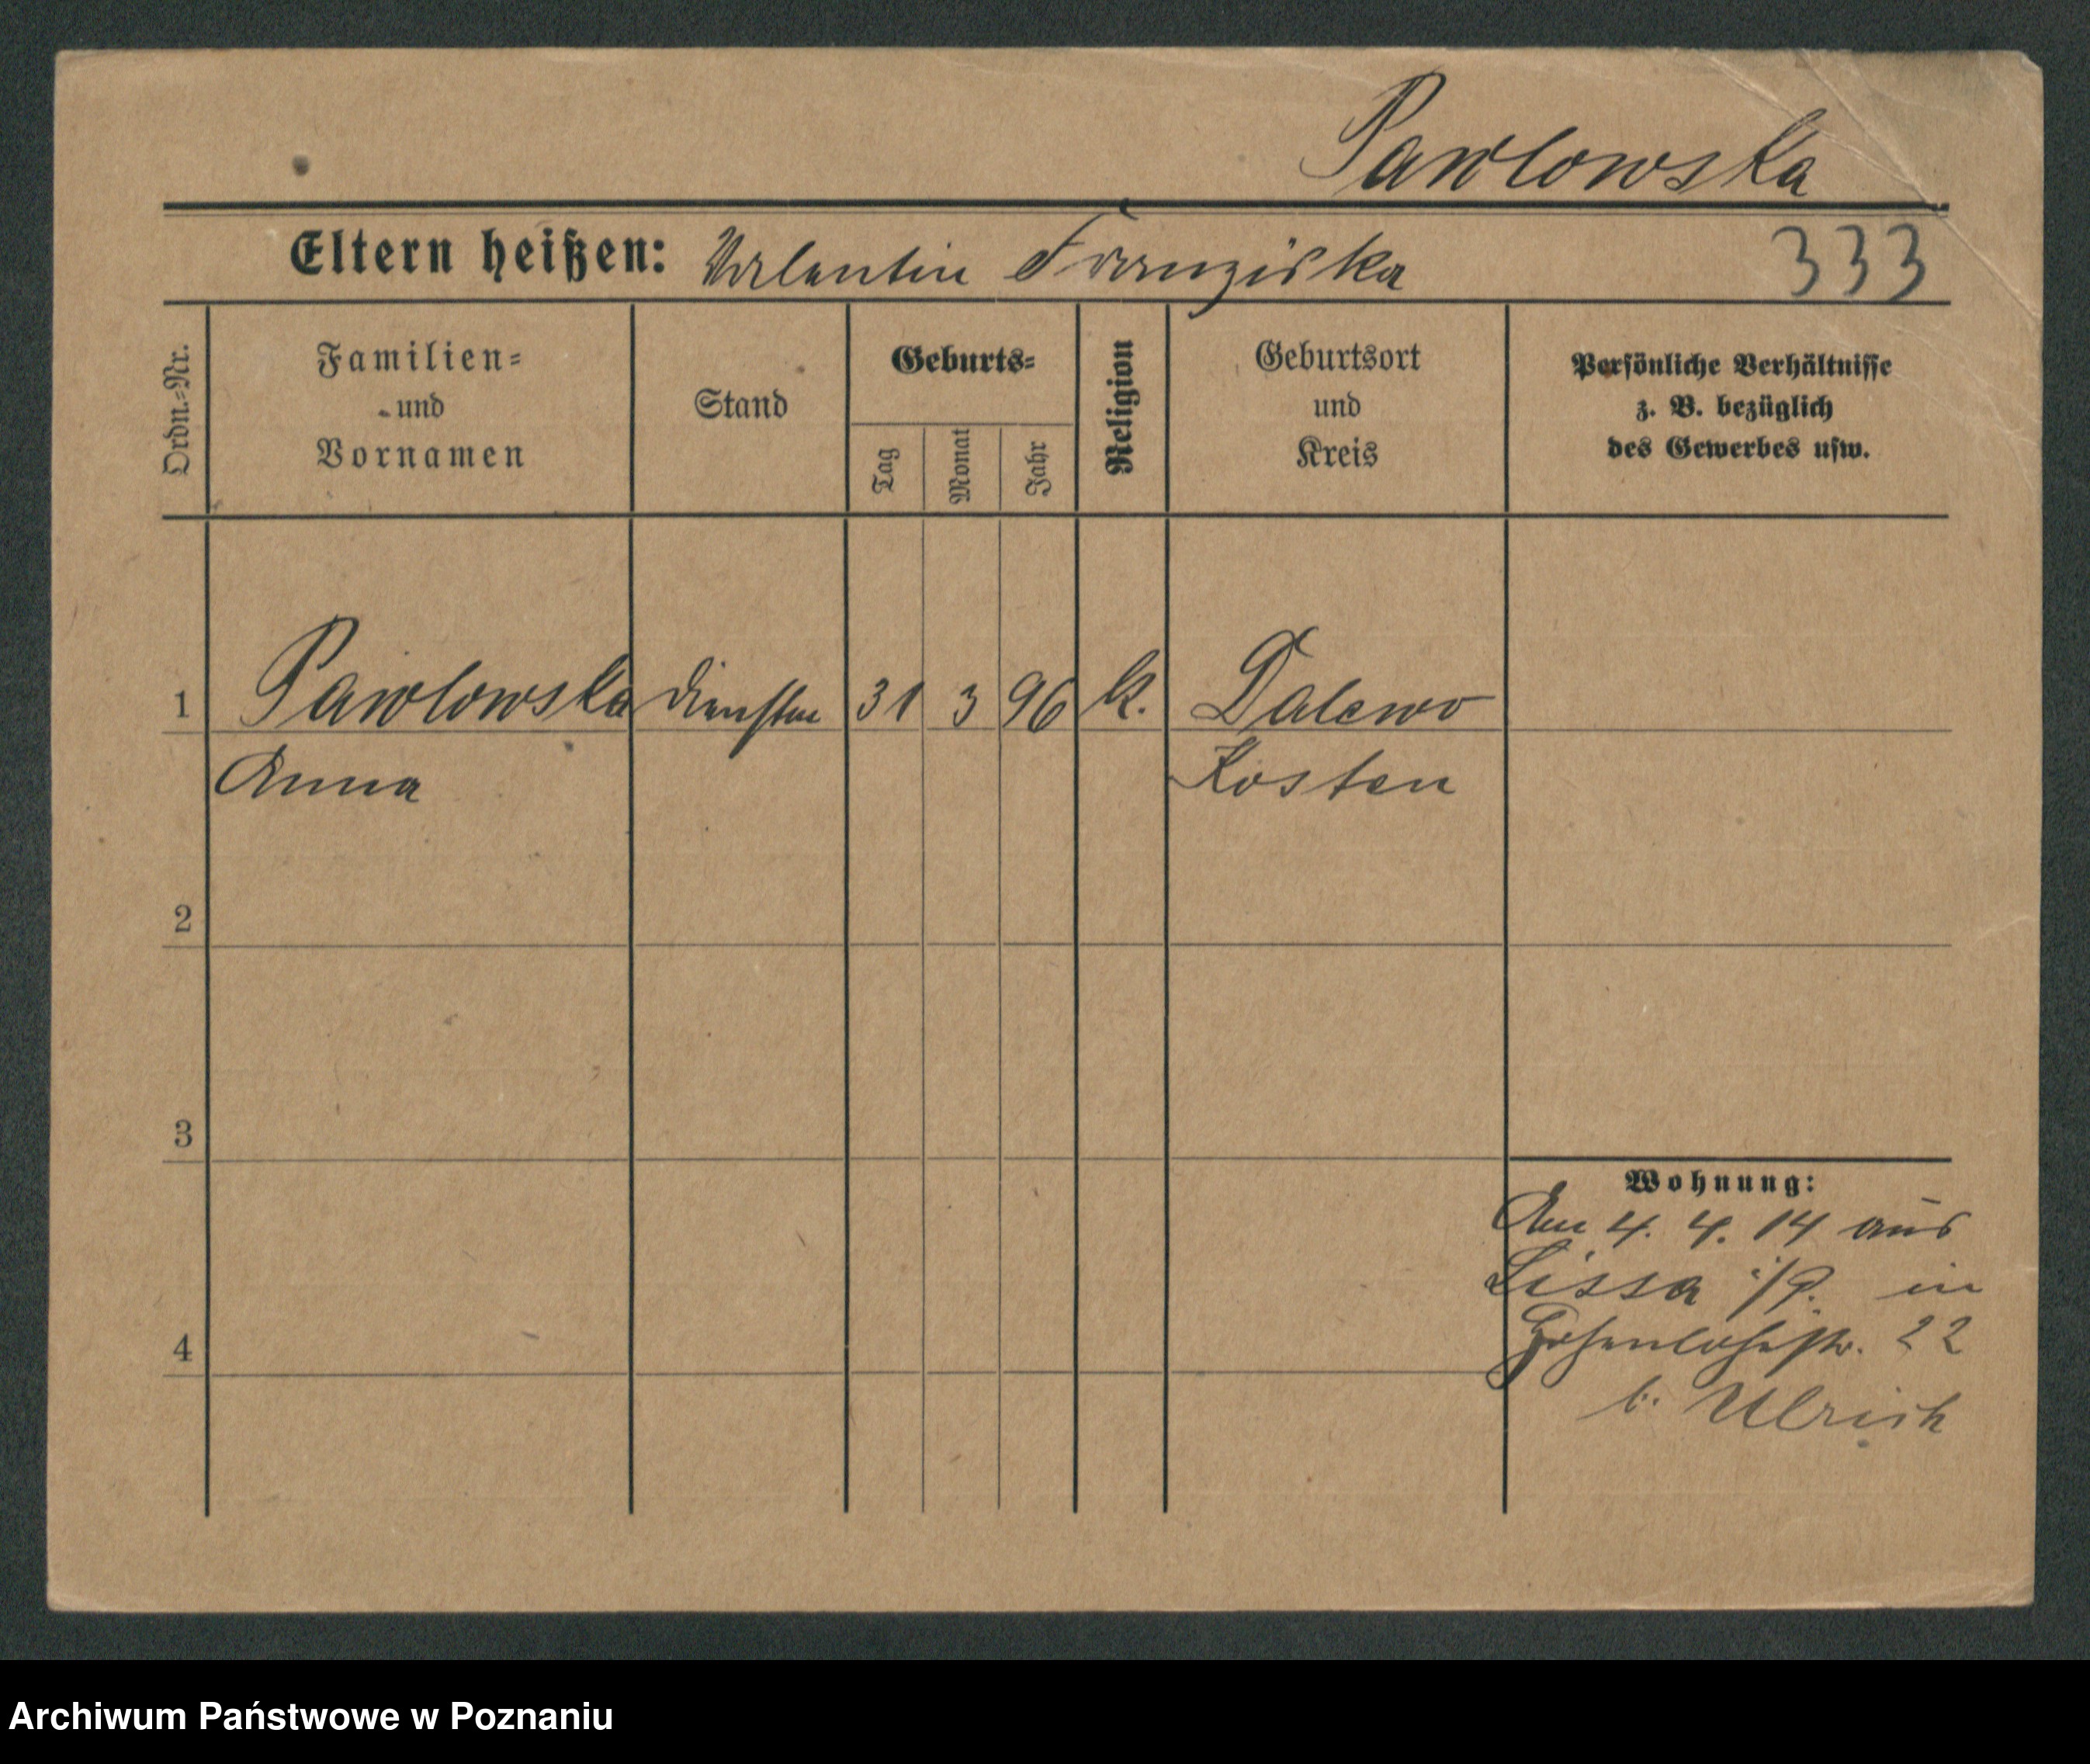 Pawlowska
Eltern heißen: Valentin Franziska 333
Ordn.=Nr.
Familien=
und
Vornamen
Stand
Geburts=
Tag
Monat
Jahr
Religion
Geburtsort
und
Kreis
Persönliche Verhältnisse
z. B. bezüglich
des Gewerbes usw.
1 Pawlowska 31 3 96 k. Dalewo
Anna Kosten
2
3
Wohnung:
Am 4. 4. 14 aus
Lissa i/P. in
4 Hohenlohestr. 22
b. Ulrich
Archiwum Państwowe w Poznaniu